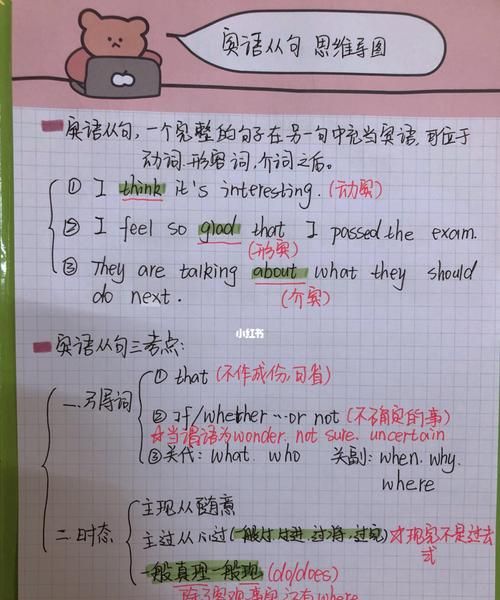 宾语从句 思维导图
宾语从句，一个完整的句子在另一句中充当宾语，可位于
动词.形容词，介词之后。
① I think it's interesting. (动宾)
② I feel so glad that I passed the exam.
(形宾)
③ They are talking about what they should
do next.
(介宾)
小红书
宾语从句三考点:
一.引导词
① that (不作成份，可省)
② if/whether…or not (不确定的事)
☆当谓语为wonder. not sure. uncertain
③关代: what. who 关副: when. why.
where
二.时态
主现从随意
主过从必过(一般过.过进.过将.过完) ☆现完不是过去
式
一般真理一般现 (do/does)